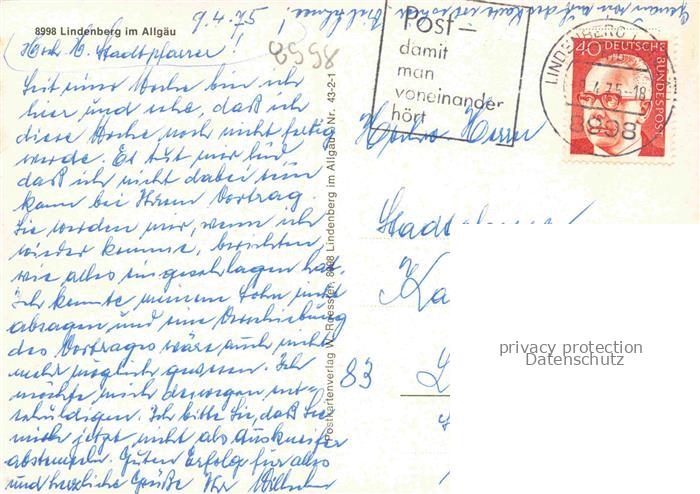 8998 Lindenberg im Allgäu
9.4.75
Hoch W. Stadtpfarrer!
8998
Seit einer Woche bin ich
hier und sehe, daß ich
diese Woche noch nicht fertig
werde. Es tut mir leid
daß ich nicht dabei sein
kann bei Ihrem Vortrag.
Sie werden mir, wenn ich
wieder komme, berichten,
wie alles eingeschlagen hat.
Ich konnte meinem Sohn nicht
absagen und eine Verschiebung
des Vortrages wäre auch nicht
mehr möglich gewesen. Ich
möchte mich deswegen ent-
schuldigen. Ich bitte Sie, daß Sie
mich jetzt nicht als Auskneifer
abstempeln. Guten Erfolg für alles
und herzliche Grüße Ihr
Postkartenverlag W. Roessler, 8998 Lindenberg im Allgäu Nr. 43-2-1
Post -
damit
man
voneinander
hört
LINDENBERG
4.75-18
8998
40 DEUTSCHE
BUNDESPOST
Herrn
83
privacy protection
Datenschutz